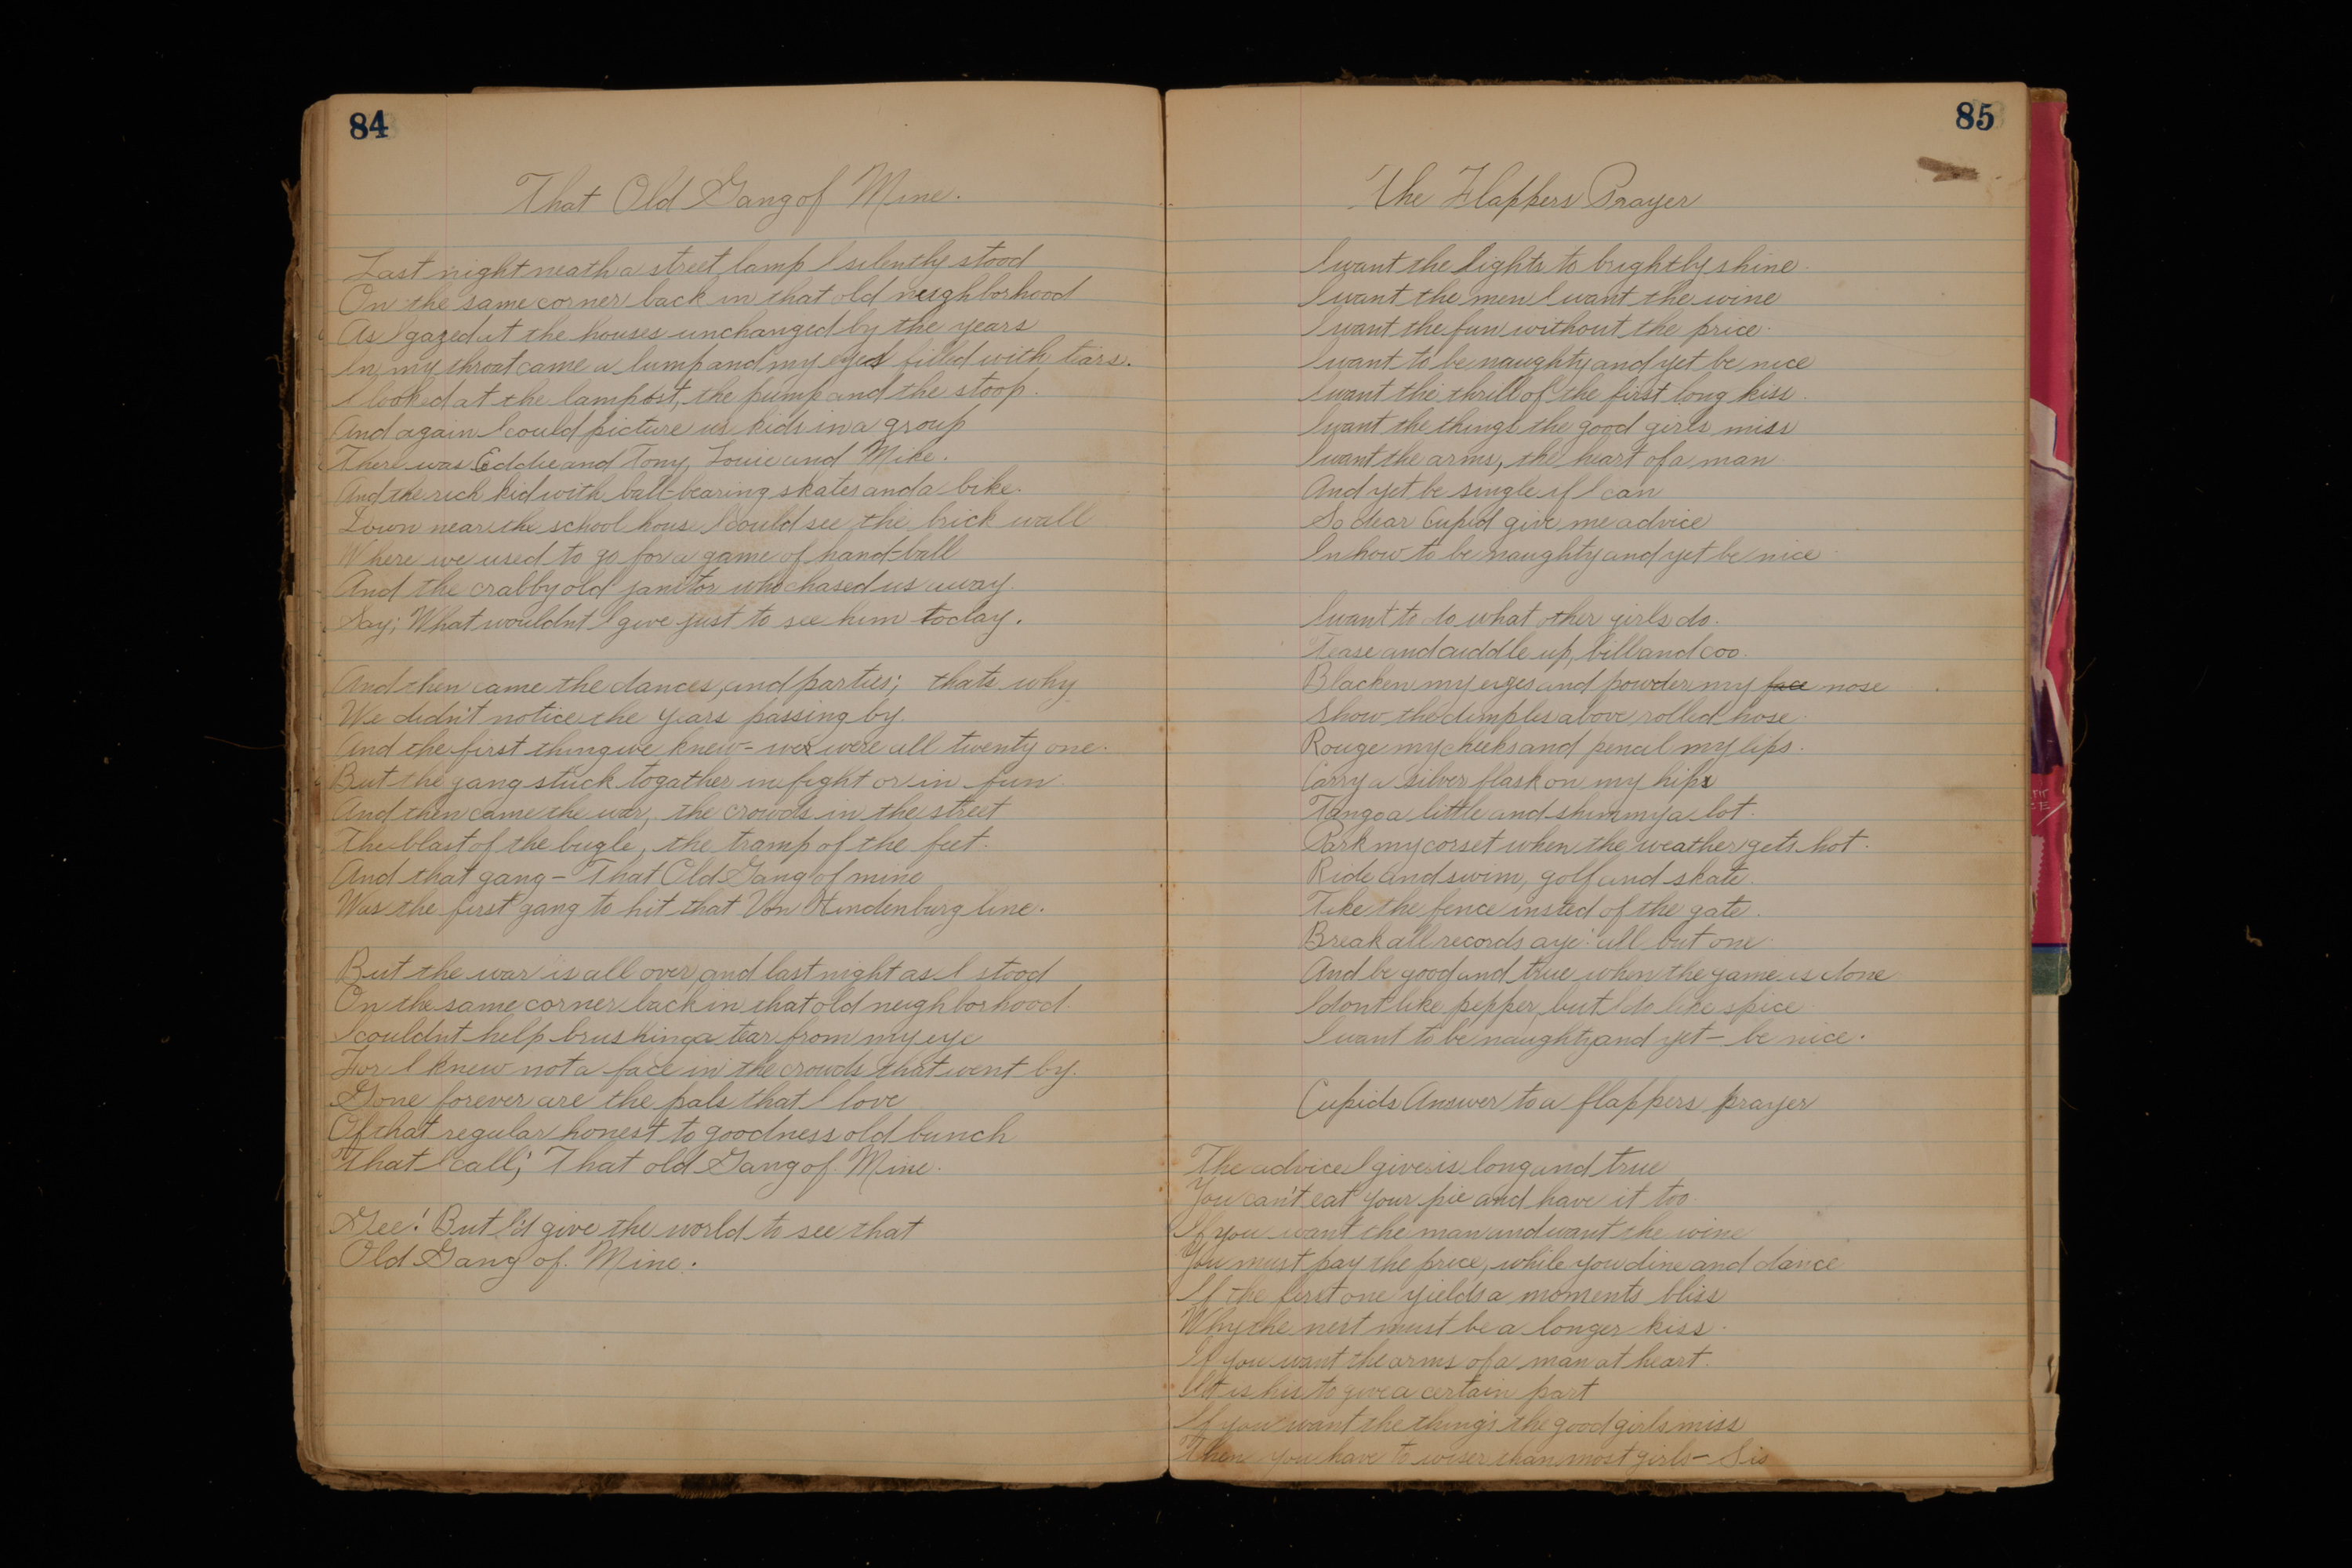 84
That Old Gang of Mine.
Last night neath a street lamp I silently stood
On the same corner back in that old neighborhood
As I gazed at the houses unchanged by the years
In my throat came a lump and my eyes filled with tears.
I looked at the lampost, the pump and the stoop.
And again I could picture us kids in a group
There was Eddie and Tony, Louie and Mike.
And the rich kid with ball-bearing skates and a bike.
Down near the school house I could see the brick wall
Where we used to go for a game of hand-ball
And the crabby old janitor who chased us away.
Say; What wouldnt I give just to see him today.
And then came the dances, and parties; thats why
We didn't notice the years passing by.
And the first thing we knew - we were all twenty one.
But the gang stuck togather in fight or in fun.
And then came the war, the crowds in the street
The blast of the bugle, the tramp of the feet.
And that gang - That Old Gang of mine
Was the first gang to hit that Von Hindenburg line.
But the war is all over, and last night as I stood
On the same corner back in that old neighborhood.
I couldnt help brushing a tear from my eye
For I knew not a face in the crowds that went by.
Gone forever are the pals that I love
Of that regular honest to goodness old bunch
That I call; That old Gang of Mine.
Gee! But I'd give the world to see that
Old Gang of. Mine.
85
The Flappers Prayer
I want the lights to brightly shine.
I want the men I want the wine
I want the fun without the price.
I want to be naughty and yet be nice
I want the thrill of the first long kiss.
I want the things the good girls miss
I want the arms, the heart of a man
And yet be single if I can
So dear Cupid give me advice
In how to be naughty and yet be nice.
I want to do what other girls do.
Tease and cuddle up, bill and coo.
Blacken my eyes and powder my face nose
Show the dimples above rolled hose.
Rouge my cheeks and pencil my lips.
Carry a silver flask on my hips
Tango a little and shimmy a lot.
Park my corset when the weather gets hot.
Ride and swim, golf and skate.
Take the fence insted of the gate.
Break all records aye! all but one.
And be good and true when the game is done
I dont like pepper, but I do like spice.
I want to be naughty and yet - be nice.
Cupids Answer to a flappers prayer
The advice I give is long and true
You can't eat your pie and have it too.
If you want the man and want the wine
You must pay the price, while you dine and dance
If the first one yields a moments bliss
Why the next must be a longer kiss.
If you want the arms of a man at heart.
It is his to give a certain part
If you want the things the good girls miss
Then you have to wiser than most girls - Sis